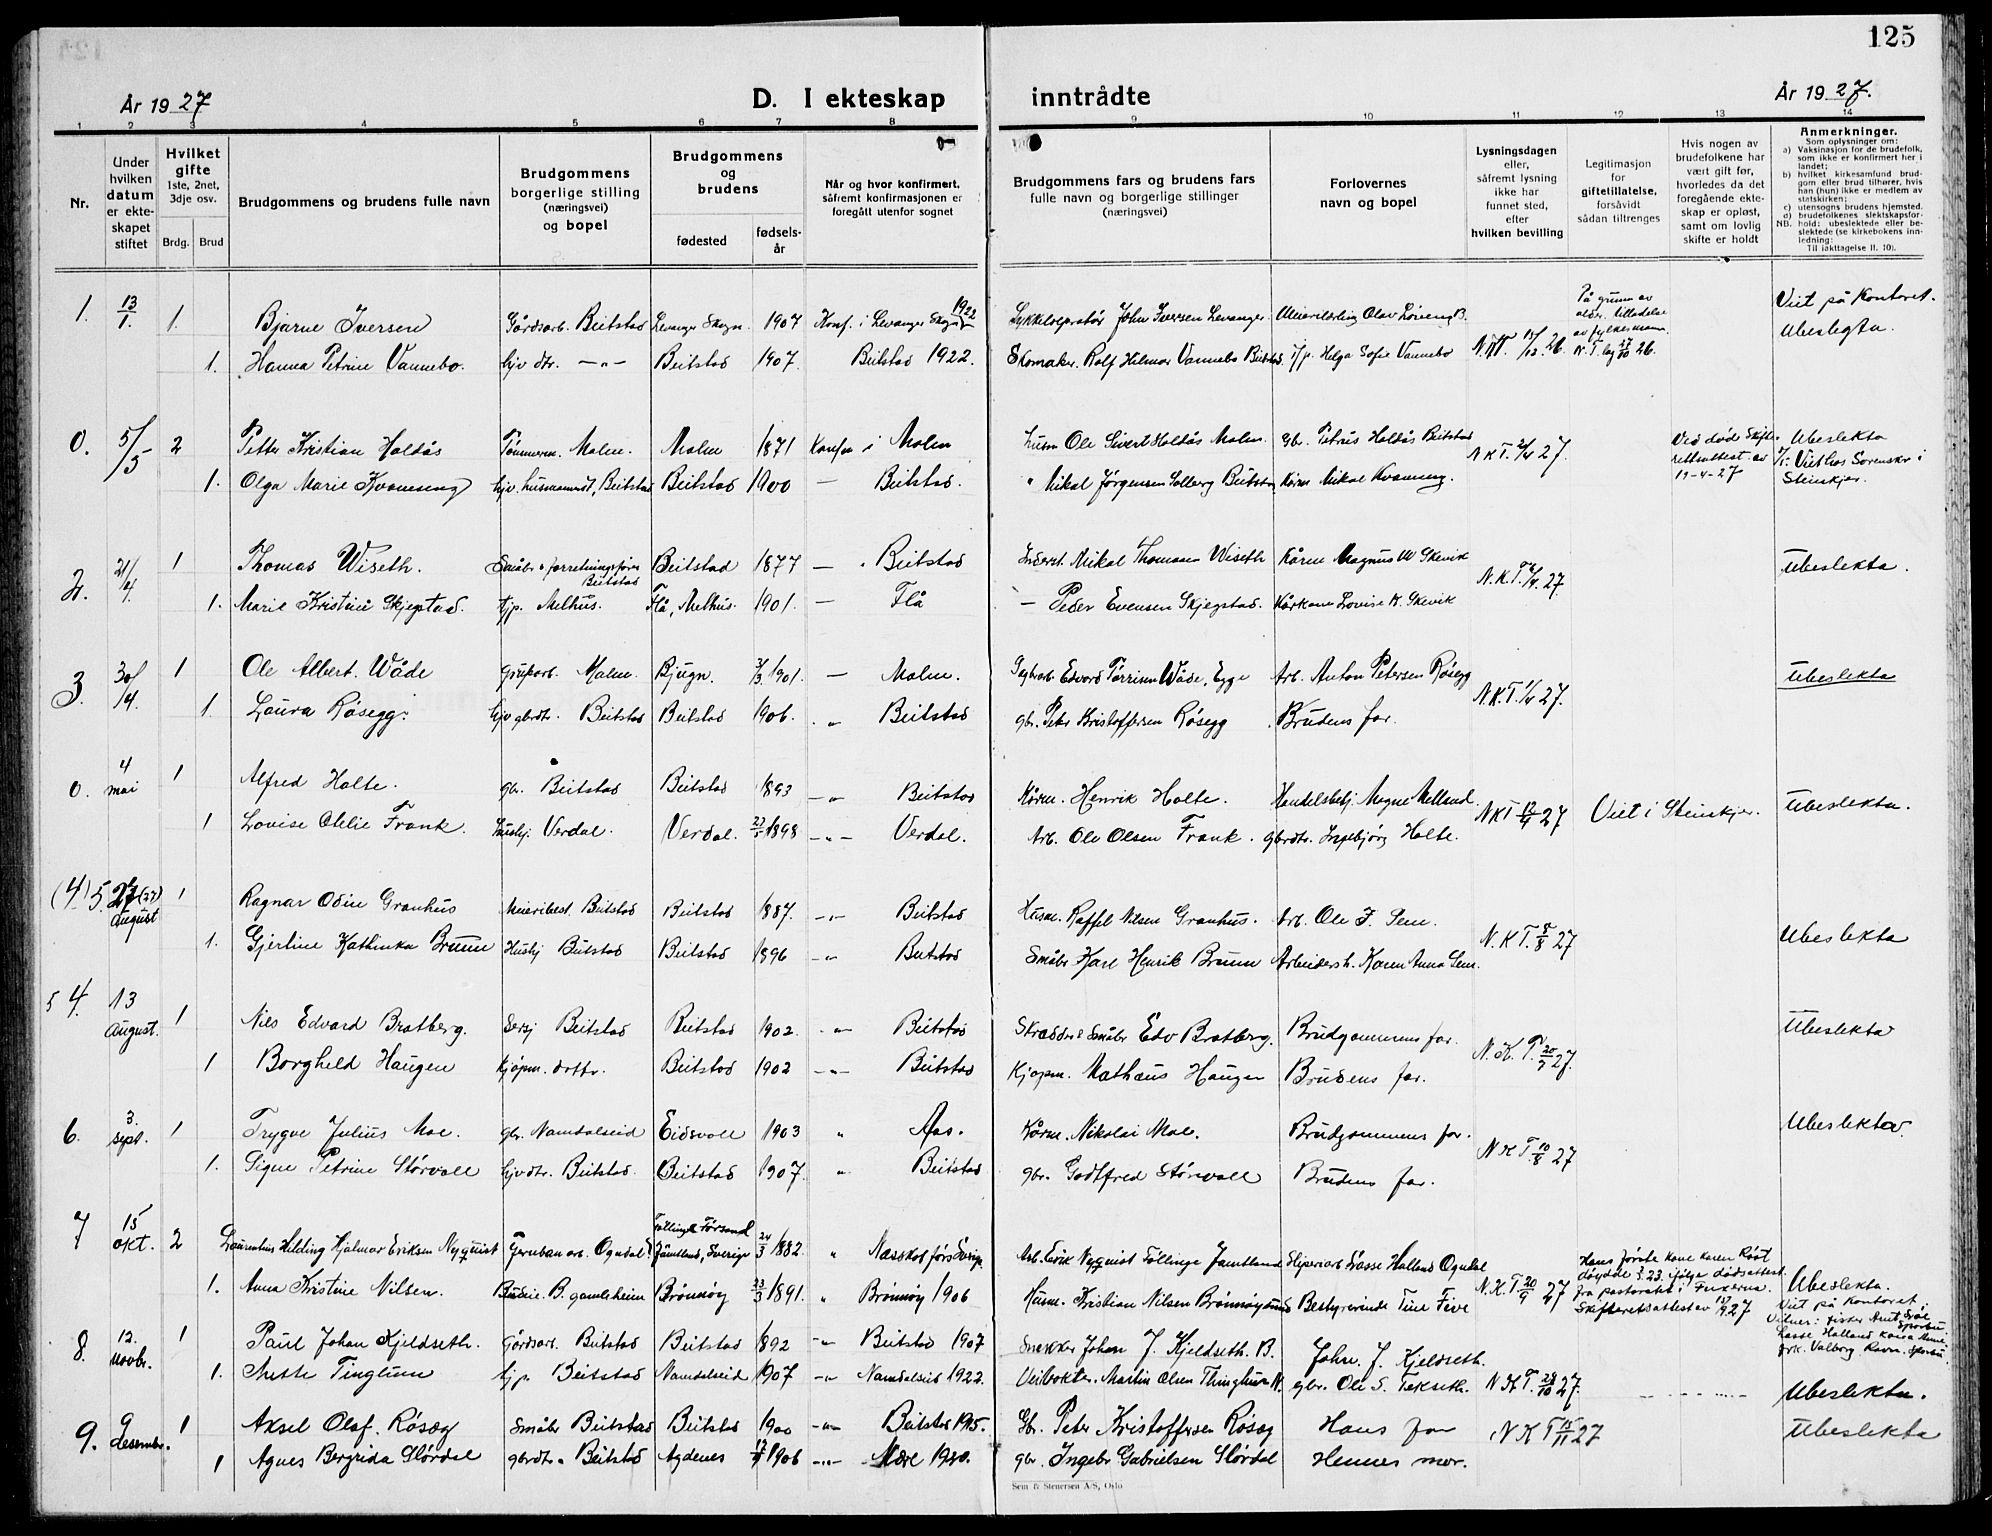 125
År 1927
D. I ekteskap inntrådte
År 1927.
1 2 3 4 5 6 7 8 9 10 11 12 13 14
Nr.
Under hvilken datum er ekteskapet stiftet
Hvilket gifte 1ste, 2net, 3dje osv.
Brdg. Brud
Brudgommens og brudens fulle navn
Brudgommens borgerlige stilling (næringsvei) og bopel
Brudgommens og brudens
fødested
fødselsår
Når og hvor konfirmert, såfremt konfirmasjonen er foregått utenfor sognet
Brudgommens fars og brudens fars fulle navn og borgerlige stillinger (næringsvei)
Forlovernes navn og bopel
Lysningsdagen eller, såfremt lysning ikke har funnet sted, efter hvilken bevilling
Legitimasjon for giftetillatelse, forsåvidt sådan tiltrenges
Hvis nogen av brudefolkene har vært gift før, hvorledes da det foregående ekteskap er opløst, samt om lovlig skifte er holdt
Anmerkninger.
Som oplysninger om:
a) Vaksinasjon for de brudefolk, som ikke er konfirmert her i landet;
b) hvilket kirkesamfund brudgom eller brud tilhører, hvis han (hun) ikke er medlem av statskirken;
c) utensogns brudens hjemsted.
d) brudefolkenes slektskapsforhold: ubeslektede eller beslektede (se kirkebokens innledning:
NB.
Til iakttagelse II. 10).
1. 13/1. 1. Bjarne Iversen Gårdsarb. Beitstad Levanger Skogn. 1907 Konf. i Levanger Skogn 1922 Lykkeloepratør John Iversen Levanger. Meierilærling Olav På grunn av alder. tilladelse av fylkesmann N.T. 26. Viet på Kontoret. Ubeslegta.
1. Hanna Petrine Vannebo. hjv dtr. —"— Beitstad 1907. Beitstad 1922. Skomaker. Rolf Hilmar Vannebo Beitstad. Helga Sofie Vannebo 26.
0. 5/5 2 Petter Kristian Haldås Tømmerm. Malm. Malm 1871 Konfm i Malm husm Ole Sivert Haldås Malm. Gbr. Petrus Haldås Beitstad N K T. 27. Ved død Skifterettsattest av 19-4-27 Ubeslekta Viet hos Sorenskr i Steinkjer.
1. Olga Marie Kvameng hjv. husmannsdt, Beitstad Beitstad 1900 — Beitstad. " Mikal Jørgensen Solberg Beitstad Kårm Mikal Kvameng.
2. 21/4. 1 Thomas Wiseth. Småbr & forretningsfører Beitstad Beitstad 1877 — Beitstad Inderst. Mikal Thomasen Wiseth Kårm Magnus M Skevik N.K.T. 27. Ubeslekta.
1. Marie Kristine Skjegstad. tjp. Melhus. Flå, Melhus. 1901. — Flå — Peder Evensen Skjegstad. Kårkone Lovise K. Skevik
3. 30/4. 1 Ole Albert. Wåde Grubarb. Malm. Bjugn. 1901. — Malm. Edvard Wåde, Egge Arb. Anton Petersen Røsegg N.K.T. 27. Ubeslekta
1. Laura Røsegg. hjv gbrdtr. Beitstad Beitstad 1906. " Beitstad gbr. Peter Kristoffersen Røsegg Brudens far.
0. 4 mai 1 Alfred Holte. gbr. Beitstad Beitstad 1893 —"— Beitstad Kårm. Henrik Holte. Handelsbetj. Magne NKT 27 Viet i Steinkjer. Ubeslekta.
1 Lovise Otelie Frank. Hushj. Verdal. Verdal. 1898 —"— Verdal. Arb. Ole Olsen Frank. gbrdtr. Ingebjørg Holte.
(4) 5. 27 (27) August 1 Ragnar Odin Granhus Meieribest. Beitstad Beitstad 1887. —"— Beitstad Husm. Raffel Nilsen Granhus. Arb. Ole F. Sem. N.K.T. 8/8 27 Ubeslekta
1. Gjertine Kathinka Bruun Hushj Beitstad Beitstad 1896 —"— Beitstad Småbr Karl Henrik Bruun Arbeidersh. Karen Anna Sem.
5 4. 13 August. 1 Nils Edvard Bratberg. Beitstad Beitstad 1902. —"— Beitstad Skredder & Småbr Edv Bratberg. Brudgommens far. N.K.T. 20/7 27. Ubeslekta
1 Borghild Haugen Kjøpm. dottr. Beitstad 1902 —"— Beitstad Kjøpm. Mathæus Haugen Brudens far.
6. 3. sept. 1 Trygve Julius Moe. gbr. Namdalseid Eidsvoll 1903 " Aas. Kårm. Nikolai Moe. Brudgommens far. N K T. 10/8 27 Ubeslekta.
1. Signe Petrine Størvoll hjv dtr. Beitstad. Beitstad 1907. " Beitstad gbr. Godtfred Størvoll Brudens far.
7 15 okt. 2 Laurentius Hilding Hjalmar Eriksen Nyquist Jernban arb. Ogndal Jämtland, Sverige 24/3 1882. " Sverige Arb. Erik Nyquist Föllinge Jämtland Lasse Halland Ogndal N.K.T. 20/9 27 Hans første kone Karen døyde ifølge dødsattest fra pastoratet i Skifteretsattest av 27 Ubeslekta. Viet på Kontoret.
1. Anna Kristine Nilsen. B. gamleheim Brønnøy 23/3 1891. " Brønnøy 1906 Husm. Kristian Nilsen Brønnøysund Bestyrerinde Tine Five Lasse Halland
8. 12. novbr. 1 Paul Johan Kjeldseth. Gårdsarb. Beitstad Beitstad 1892 —"— Beitstad 1907 Snekker Johan J. Kjeldseth. B. Johan. J. Kjeldseth.
1. Mette Tinglum tjp. Beitstad Namdalseid 1907 —"— Namdalseid 1922. Veivokter. Martin Olsen Thinghum N. gbr. Ole S. N K T. 28/10 27. Ubeslekta.
9. 9 Desembr. 1 Aksel Olaf. Røsæg Småbr Beitstad Beitstad 1900 —"— Beitstad 1915. Gbr. Peter Kristoffersen Røsæg Hans far N K T 15/11 27 Ubeslekta
1 Agnes Bergrida Slørdal gbrdtr. Beitstad Agdenes 1906 —"— Mære 1920. gbr. Ingebr Gabrielsen Slørdal Hennes mor.
Sem & Stenersen A/S, Oslo